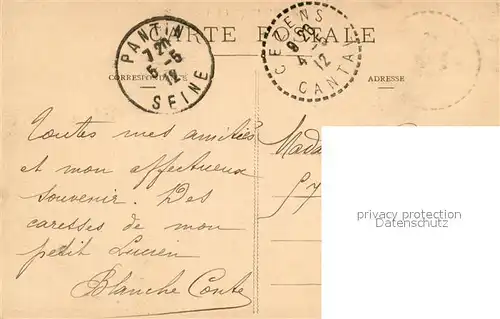 CARTE POSTALE
PANTIN
7 20
5 -5
12
SEINE
CEZENS
9 20
4 -5
12
CANTAL
CORRESPONDANCE
ADRESSE
Toutes mes amitiés
et mon affectueux
souvenir. Des
caresses de mon
petit Lucien
Blanche Conte
Mada
57
privacy protection
Datenschutz